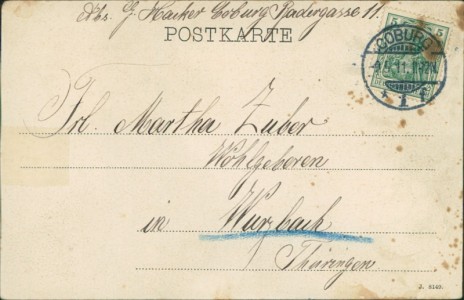 Abs. G. Hacker Coburg Radergasse 11.
POSTKARTE
5 5
COBURG
1
Frl. Martha Zuber
Wohlgeboren
in Wurzbach
Thüringen
J. 8140.